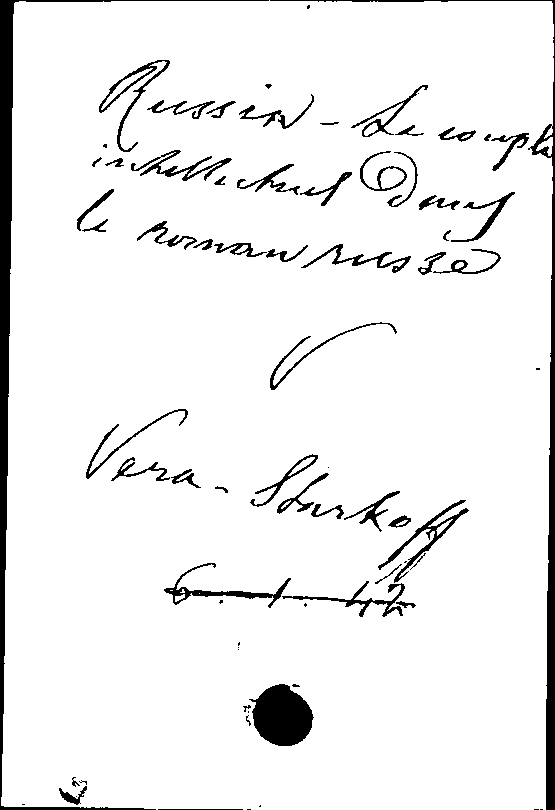 Russie - Le couple
intellectuel dans
le roman russe
V
Vera - Starkoff
6. 1. 42